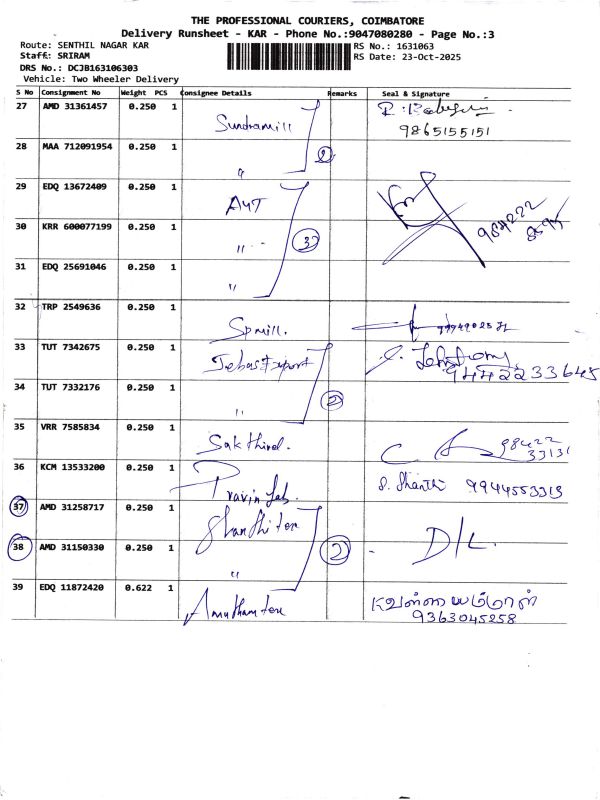 THE PROFESSIONAL COURIERS, COIMBATORE
Delivery Runsheet - KAR - Phone No.:9047080280 - Page No.:3
Route: SENTHIL NAGAR KAR
RS No.: 1631063
Staff: SRIRAM
RS Date: 23-Oct-2025
DRS No.: DCJB163106303
Vehicle: Two Wheeler Delivery
S No Consignment No Weight PCS Consignee Details Remarks Seal & Signature
27 AMD 31361457 0.250 1 Sundramill
9865155151
28 MAA 712091954 0.250 1 " 2
29 EDQ 13672409 0.250 1 AMT
30 KRR 600077199 0.250 1 " 3 984222
31 EDQ 25691046 0.250 1 "
32 TRP 2549636 0.250 1 Spmill.
33 TUT 7342675 0.250 1 Jebas Export
9442233645
34 TUT 7332176 0.250 1 " 2
35 VRR 7585834 0.250 1 Sakthivel. 98422
33131
36 KCM 13533200 0.250 1 Pravin Lab. S. Shanthi 9944553313
37 AMD 31258717 0.250 1 Shanthi tex
38 AMD 31150330 0.250 1 " 2 D/L.
39 EDQ 11872420 0.622 1 Amutham tex
9363045258